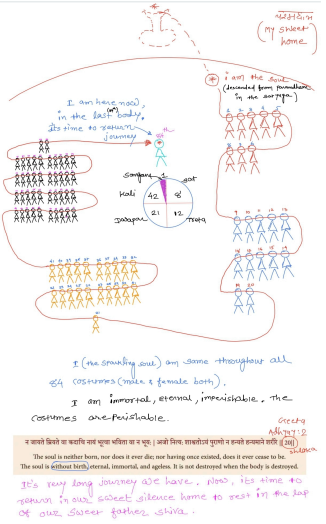 પરમધામ
(My sweet
home)
i am the soul
(descended from paramdham
in the satyuga)
I am here now,
in the last body.
its time to return
journey
84th
Sangam 1
Sat
Kali 42 8
21 12
Treta
I (the sparkling soul) am same throughout all
84 costumes (male & female both).
I am immortal, eternal, imperishable. The
costumes are perishable.
Geeta
Adhyay: 2
न जायते म्रियते वा कदाचि नायं भूत्वा भविता वा न भूयः | अजो नित्यः शाश्वतोऽयं पुराणो न हन्यते हन्यमाने शरीरे || 20||
shloka
The soul is neither born, nor does it ever die; nor having once existed, does it ever cease to be.
The soul is without birth, eternal, immortal, and ageless. It is not destroyed when the body is destroyed.
It's very long journey we have. Now, its time to
return in our sweet silence home to rest in the lap
of our sweet father shiva.